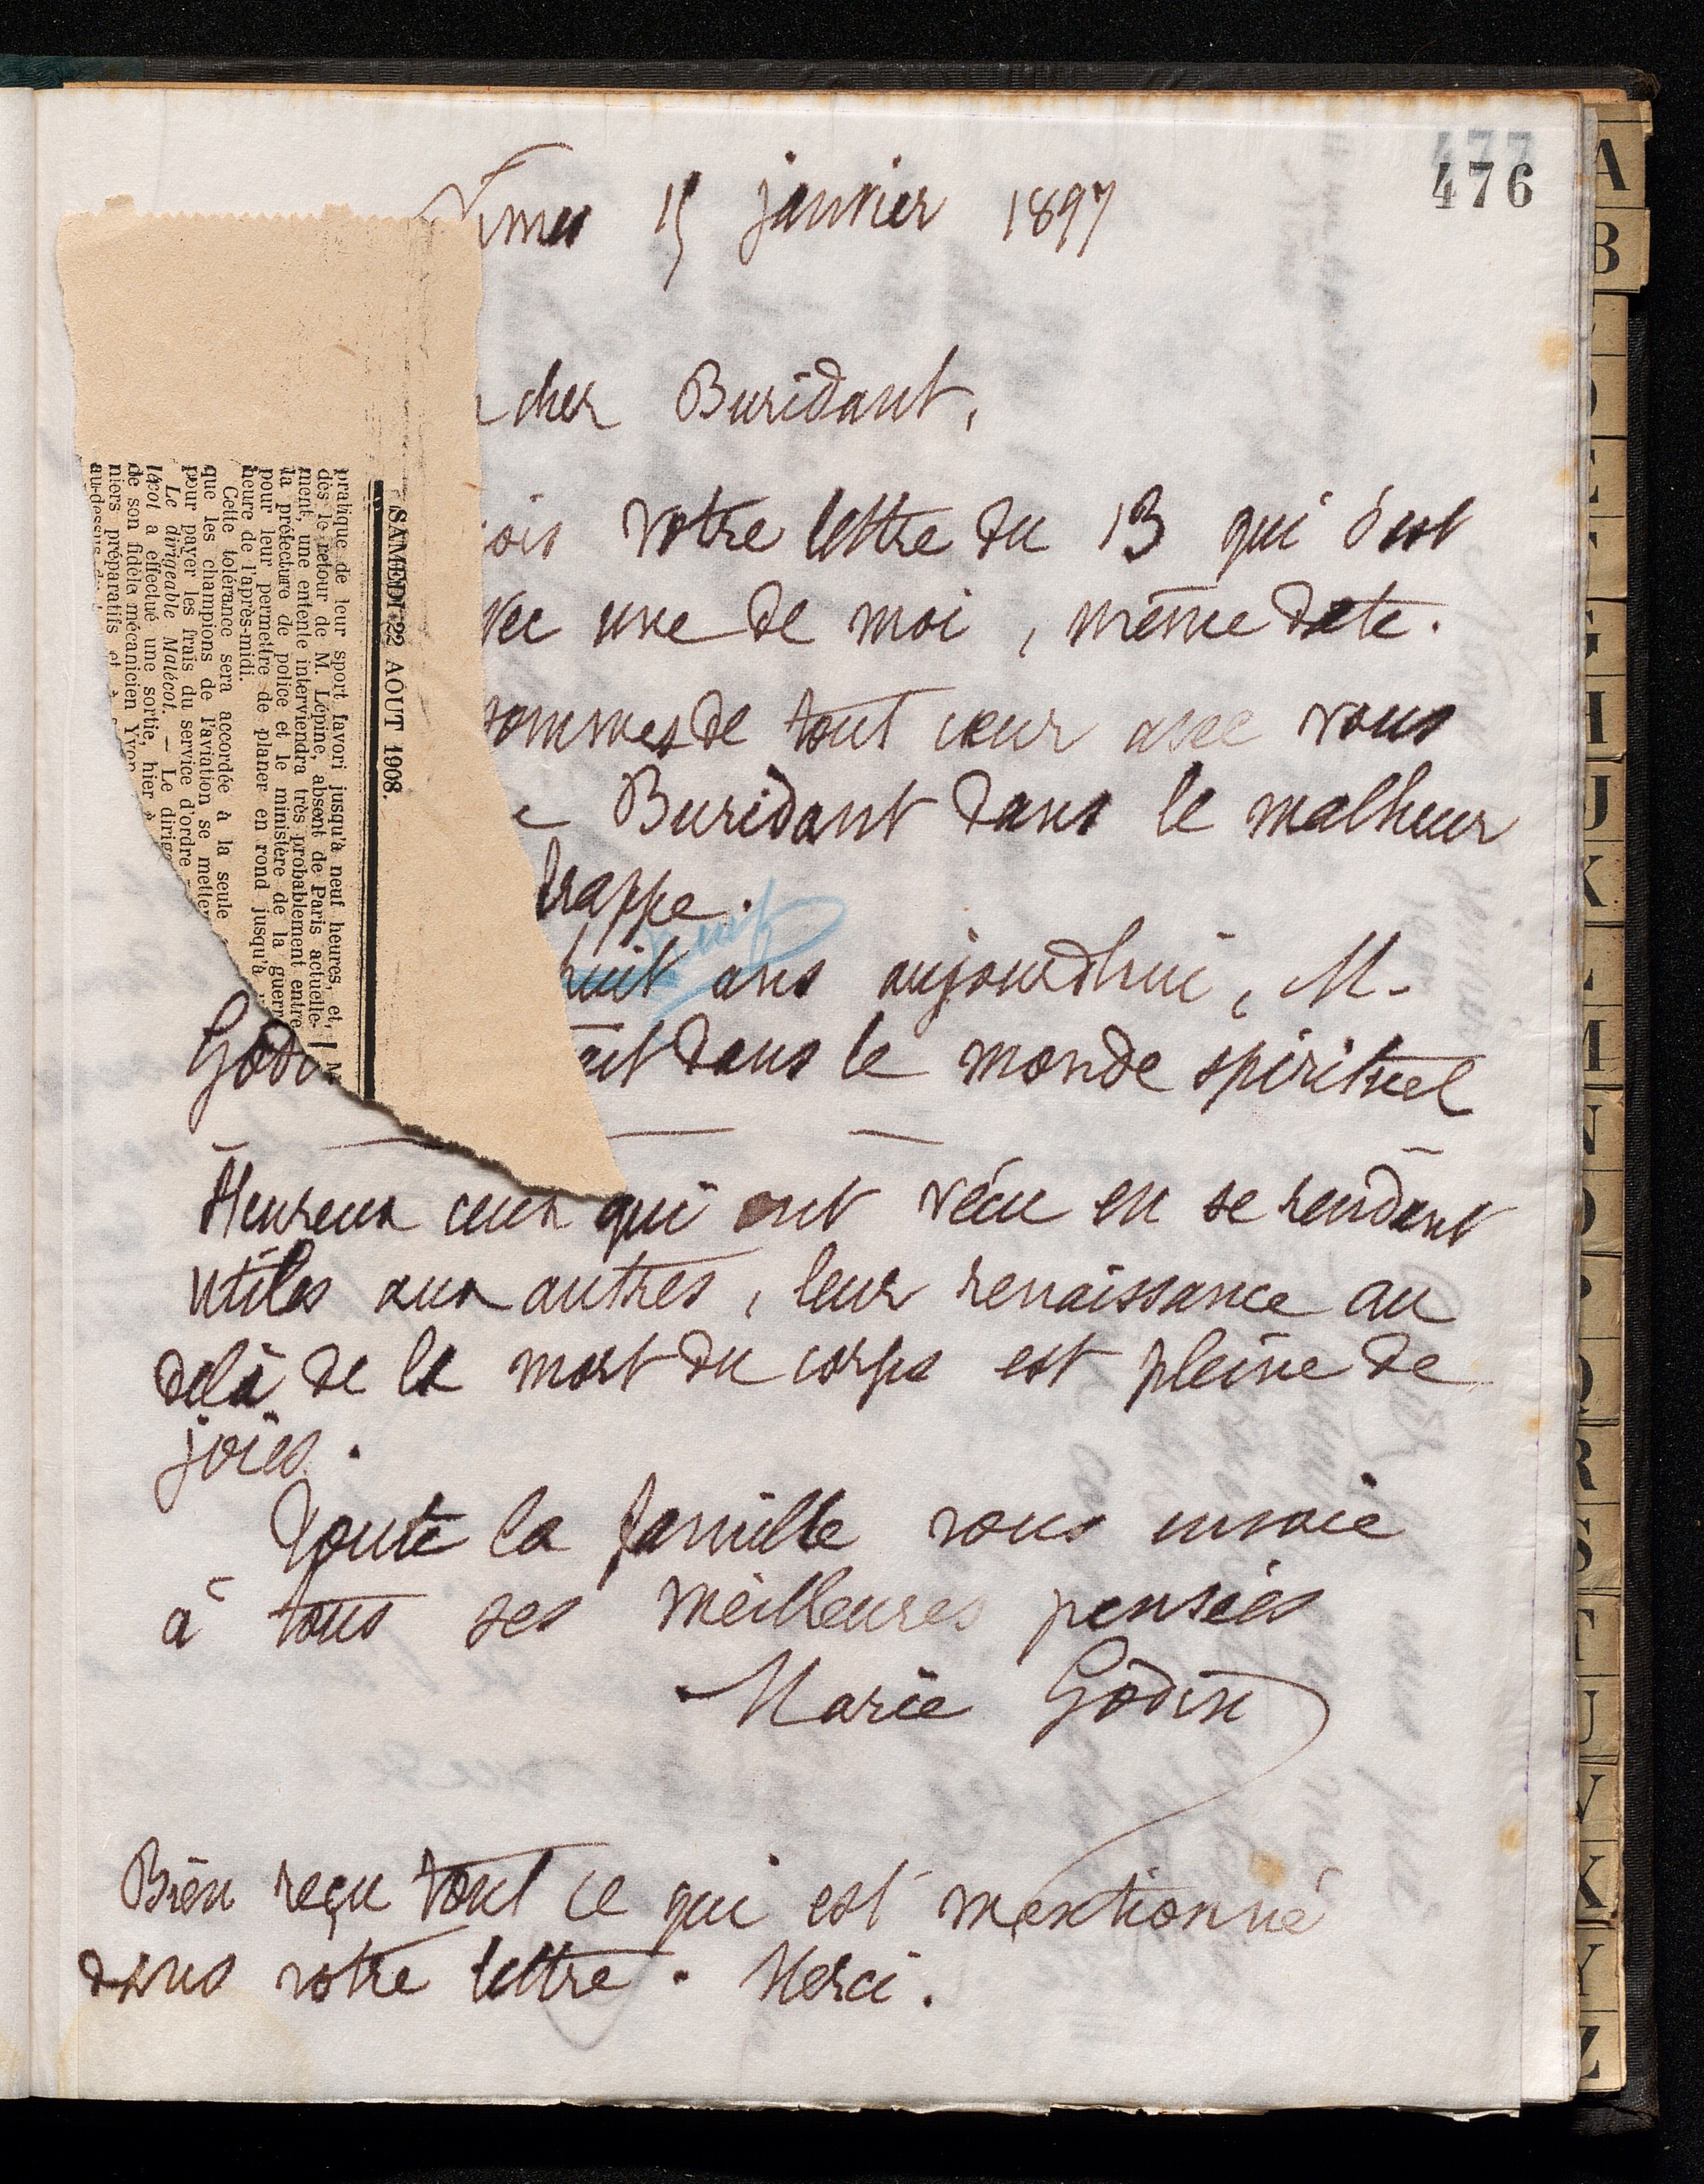 477
476
Nîmes 15 janvier 1897
cher Buridant,
ois votre lettre du 13 qui s'est
vec une de moi, même date.
sommes de tout cœur avec vous
e Buridant dans le malheur
frappe.
neuf
huit ans aujourdhui, M.
Godi ait dans le monde spirituel
Heureux ceux qui ont vécu en se rendant
utiles aux autres, leur renaissance au
delà de la mort du corps est pleine de
joies.
Toute la famille vous envoie
à tous ses meilleures pensées
Marie Godin
Bien reçu tout ce qui est mentionné
dans votre lettre. Merci.
SAMEDI 22 AOUT 1908.
pratique de leur sport favori jusqu'à neuf heures, et,
dès le retour de M. Lépine, absent de Paris actuelle-
ment, une entente interviendra très probablement entre
la préfecture de police et le ministère de la guerr
pour leur permettre de planer en rond jusqu'à
heure de l'après-midi.
Cette tolérance sera accordée à la seule
que les champions de l'aviation se metten
pour payer les frais du service d'ordre
Le dirigeable Malécot. — Le dirige
lécot a effectué une sortie, hier
de son fidèle mécanicien Yvon
niers préparatifs et
au-dessus
A
B
D
E
F
G
H
J
K
L
M
N
O
P
Q
R
S
T
U
V
X
Y
Z